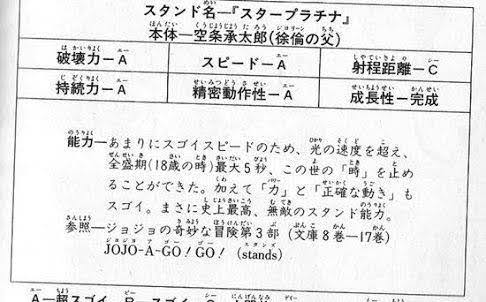 スタンド名─『スタープラチナ』
本体─空条承太郎(徐倫の父)
破壊力─A スピード─A 射程距離─C
持続力─A 精密動作性─A 成長性─完成
能力─あまりにスゴイスピードのため、光の速度を超え、
全盛期(18歳の時)最大5秒、この世の「時」を止め
ることができた。加えて「力」と「正確な動き」も
スゴイ。まさに史上最高、無敵のスタンド能力。
参照─ジョジョの奇妙な冒険第3部(文庫8巻─17巻)
JOJO-A-GO!GO!(stands)
A─超スゴイ B─スゴイ